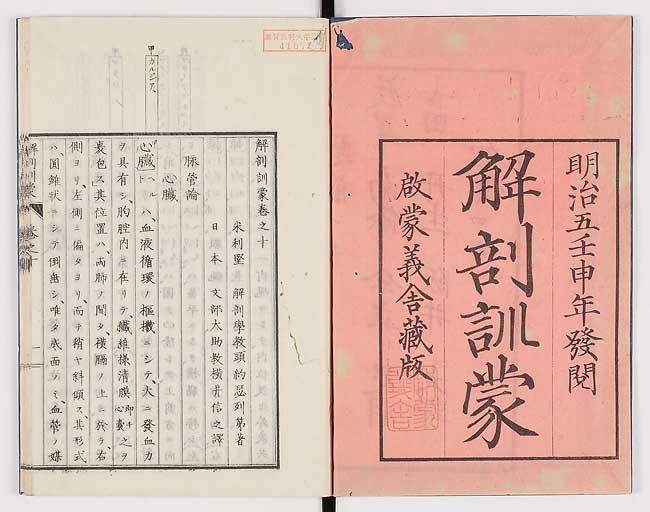 明治五壬申年發閱
解剖訓蒙
啟蒙義舍藏版
解剖訓蒙卷之十
米利堅 解剖學教頭 約瑟列第著
日本 文部大助教 横井信之譯
脈管論
心臓
心臓ハ、血液循環ノ樞機ニシテ、大ニ發血力
ヲ具有シ、胸腔内ニ在リテ、纖維様清膜即チ心囊之ヲ
裹包ス其位置ハ、兩肺ノ間タ、横膈ノ上ニ於テ右
側ヨリ、左側ニ偏タヨリ、而テ稍ヤ斜傾ス、其形式
ハ圓錐狀ヲシテ倒垂シ、唯タ底面ノミ、血管ノ媒
解剖訓蒙
卷之十
一